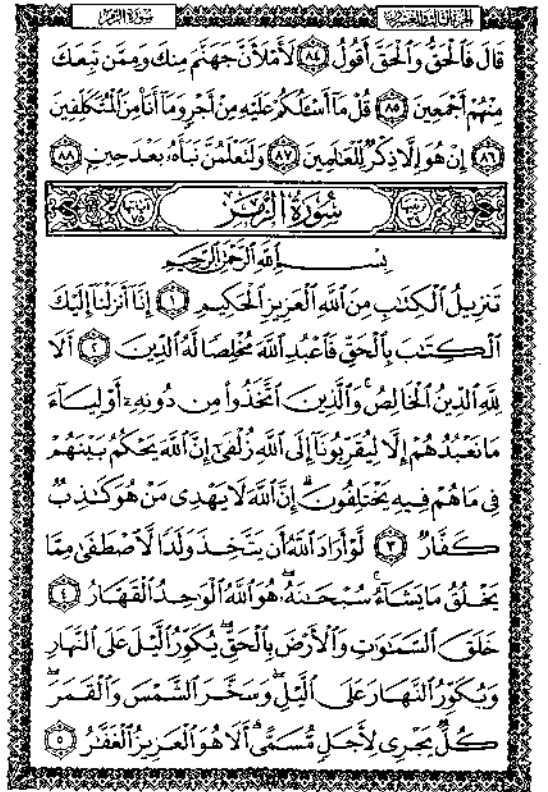 الجزء الثالث والعشرون سورة الزمر
قَالَ فَٱلْحَقُّ وَٱلْحَقَّ أَقُولُ ٨٤ لَأَمْلَأَنَّ جَهَنَّمَ مِنكَ وَمِمَّن تَبِعَكَ
مِنْهُمْ أَجْمَعِينَ ٨٥ قُلْ مَآ أَسْـَٔلُكُمْ عَلَيْهِ مِنْ أَجْرٍ وَمَآ أَنَا۠ مِنَ ٱلْمُتَكَلِّفِينَ
٨٦ إِنْ هُوَ إِلَّا ذِكْرٌ لِّلْعَـٰلَمِينَ ٨٧ وَلَتَعْلَمُنَّ نَبَأَهُۥ بَعْدَ حِينٍۭ ٨٨
سُورَةُ الزُّمَرِ
بِسْمِ ٱللَّهِ ٱلرَّحْمَـٰنِ ٱلرَّحِيمِ
تَنزِيلُ ٱلْكِتَـٰبِ مِنَ ٱللَّهِ ٱلْعَزِيزِ ٱلْحَكِيمِ ١ إِنَّآ أَنزَلْنَآ إِلَيْكَ
ٱلْكِتَـٰبَ بِٱلْحَقِّ فَٱعْبُدِ ٱللَّهَ مُخْلِصًا لَّهُ ٱلدِّينَ ٢ أَلَا
لِلَّهِ ٱلدِّينُ ٱلْخَالِصُ ۚ وَٱلَّذِينَ ٱتَّخَذُوا۟ مِن دُونِهِۦٓ أَوْلِيَآءَ
مَا نَعْبُدُهُمْ إِلَّا لِيُقَرِّبُونَآ إِلَى ٱللَّهِ زُلْفَىٰٓ إِنَّ ٱللَّهَ يَحْكُمُ بَيْنَهُمْ
فِى مَا هُمْ فِيهِ يَخْتَلِفُونَ ۗ إِنَّ ٱللَّهَ لَا يَهْدِى مَنْ هُوَ كَـٰذِبٌ
كَفَّارٌ ٣ لَّوْ أَرَادَ ٱللَّهُ أَن يَتَّخِذَ وَلَدًا لَّٱصْطَفَىٰ مِمَّا
يَخْلُقُ مَا يَشَآءُ ۚ سُبْحَـٰنَهُۥ ۖ هُوَ ٱللَّهُ ٱلْوَٰحِدُ ٱلْقَهَّارُ ٤
خَلَقَ ٱلسَّمَـٰوَٰتِ وَٱلْأَرْضَ بِٱلْحَقِّ ۖ يُكَوِّرُ ٱلَّيْلَ عَلَى ٱلنَّهَارِ
وَيُكَوِّرُ ٱلنَّهَارَ عَلَى ٱلَّيْلِ ۖ وَسَخَّرَ ٱلشَّمْسَ وَٱلْقَمَرَ ۖ
كُلٌّ يَجْرِى لِأَجَلٍ مُّسَمًّى ۗ أَلَا هُوَ ٱلْعَزِيزُ ٱلْغَفَّـٰرُ ٥